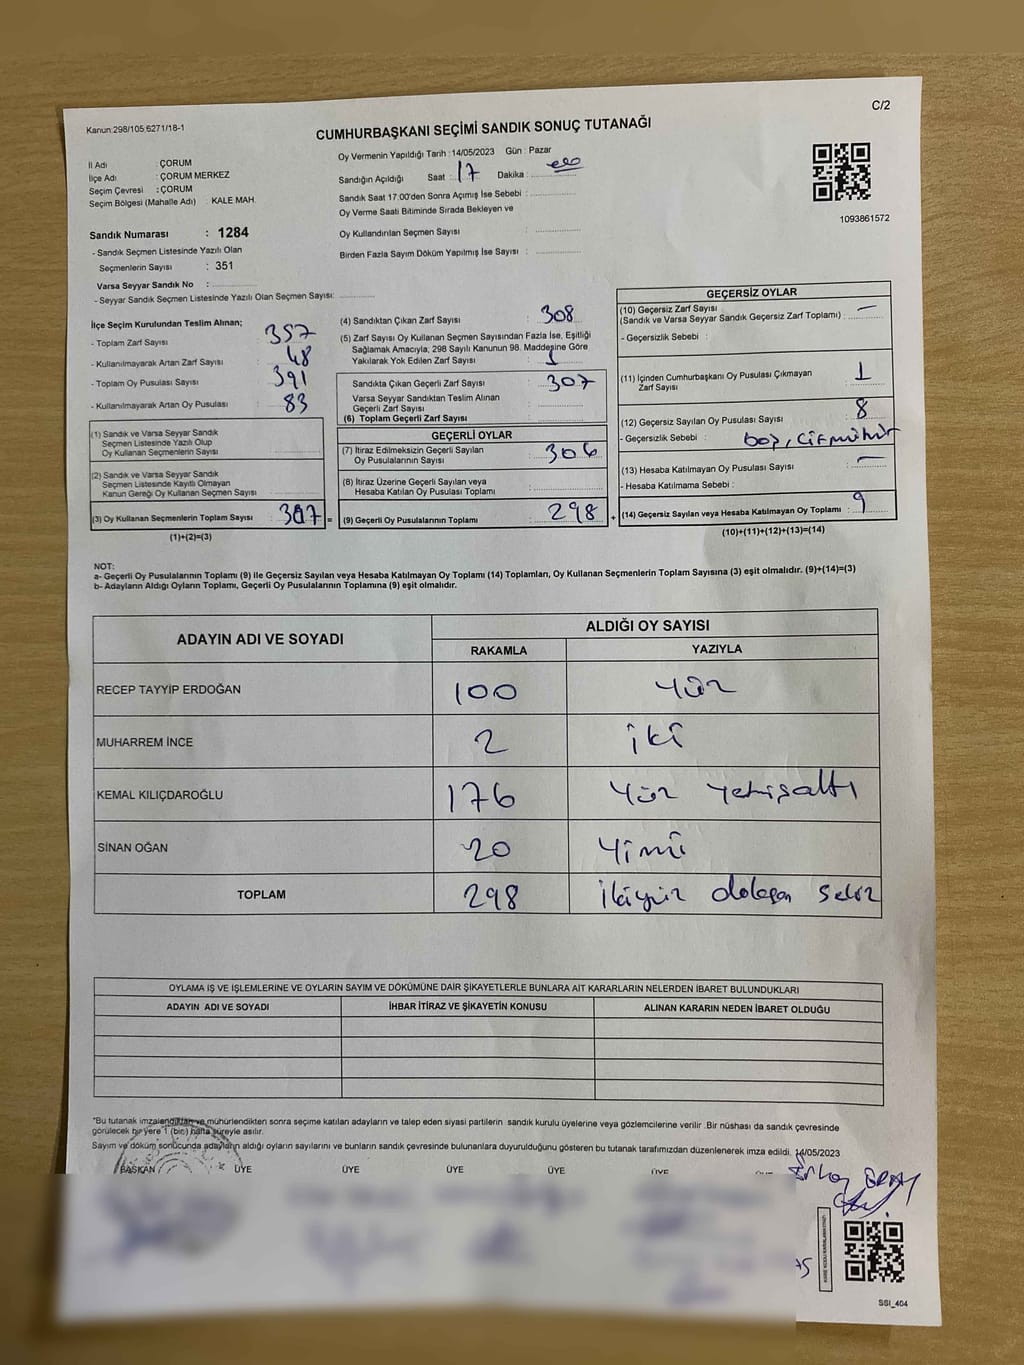 C/2
Kanun:298/105;6271/18-1
CUMHURBAŞKANI SEÇİMİ SANDIK SONUÇ TUTANAĞI
İl Adı : ÇORUM
İlçe Adı : ÇORUM MERKEZ
Seçim Çevresi : ÇORUM
Seçim Bölgesi (Mahalle Adı) : KALE MAH.
Sandık Numarası : 1284
- Sandık Seçmen Listesinde Yazılı Olan
Seçmenlerin Sayısı : 351
Varsa Seyyar Sandık No :
- Seyyar Sandık Seçmen Listesinde Yazılı Olan Seçmen Sayısı:
Oy Vermenin Yapıldığı Tarih : 14/05/2023 Gün : Pazar
Sandığın Açıldığı Saat : 17 Dakika :
Sandık Saat 17.00'den Sonra Açımış İse Sebebi :
Oy Verme Saati Bitiminde Sırada Bekleyen ve
Oy Kullandırılan Seçmen Sayısı :
Birden Fazla Sayım Döküm Yapılmış İse Sayısı :
1093861572
İlçe Seçim Kurulundan Teslim Alınan;
- Toplam Zarf Sayısı : 357
- Kullanılmayarak Artan Zarf Sayısı : 48
- Toplam Oy Pusulası Sayısı : 391
- Kullanılmayarak Artan Oy Pusulası : 83
(1) Sandık ve Varsa Seyyar Sandık
Seçmen Listesinde Yazılı Olup
Oy Kullanan Seçmenlerin Sayısı :
(2) Sandık ve Varsa Seyyar Sandık
Seçmen Listesinde Kayıtlı Olmayan
Kanun Gereği Oy Kullanan Seçmen Sayısı :
(3) Oy Kullanan Seçmenlerin Toplam Sayısı : 307 =
(1)+(2)=(3)
(4) Sandıktan Çıkan Zarf Sayısı : 308
(5) Zarf Sayısı Oy Kullanan Seçmen Sayısından Fazla İse, Eşitliği
Sağlamak Amacıyla, 298 Sayılı Kanunun 98. Maddesine Göre
Yakılarak Yok Edilen Zarf Sayısı : 1
Sandıkta Çıkan Geçerli Zarf Sayısı : 307
Varsa Seyyar Sandıktan Teslim Alınan
Geçerli Zarf Sayısı :
(6) Toplam Geçerli Zarf Sayısı :
GEÇERLİ OYLAR
(7) İtiraz Edilmeksizin Geçerli Sayılan
Oy Pusulalarının Sayısı : 306
(8) İtiraz Üzerine Geçerli Sayılan veya
Hesaba Katılan Oy Pusulası Toplamı :
(9) Geçerli Oy Pusulalarının Toplamı : 298 +
GEÇERSİZ OYLAR
(10) Geçersiz Zarf Sayısı
(Sandık ve Varsa Seyyar Sandık Geçersiz Zarf Toplamı) : —
- Geçersizlik Sebebi :
(11) İçinden Cumhurbaşkanı Oy Pusulası Çıkmayan
Zarf Sayısı : 1
(12) Geçersiz Sayılan Oy Pusulası Sayısı : 8
- Geçersizlik Sebebi : boş,
(13) Hesaba Katılmayan Oy Pusulası Sayısı : —
- Hesaba Katılmama Sebebi :
(14) Geçersiz Sayılan veya Hesaba Katılmayan Oy Toplamı : 9
(10)+(11)+(12)+(13)=(14)
NOT:
a- Geçerli Oy Pusulalarının Toplamı (9) ile Geçersiz Sayılan veya Hesaba Katılmayan Oy Toplamı (14) Toplamları, Oy Kullanan Seçmenlerin Toplam Sayısına (3) eşit olmalıdır. (9)+(14)=(3)
b- Adayların Aldığı Oyların Toplamı, Geçerli Oy Pusulalarının Toplamına (9) eşit olmalıdır.
ADAYIN ADI VE SOYADI
ALDIĞI OY SAYISI
RAKAMLA YAZIYLA
RECEP TAYYİP ERDOĞAN 100 yüz
MUHARREM İNCE 2 iki
KEMAL KILIÇDAROĞLU 176 yüz yetmişaltı
SİNAN OĞAN 20 yirmi
TOPLAM 298 ikiyüz doksan sekiz
OYLAMA İŞ VE İŞLEMLERİNE VE OYLARIN SAYIM VE DÖKÜMÜNE DAİR ŞİKAYETLERLE BUNLARA AİT KARARLARIN NELERDEN İBARET BULUNDUKLARI
ADAYIN ADI VE SOYADI İHBAR İTİRAZ VE ŞİKAYETİN KONUSU ALINAN KARARIN NEDEN İBARET OLDUĞU
"Bu tutanak imzalandıktan ve mühürlendikten sonra seçime katılan adayların ve talep eden siyasi partilerin sandık kurulu üyelerine veya gözlemcilerine verilir .Bir nüshası da sandık çevresinde
görülecek bir yere 1 (bir) hafta süreyle asılır.
Sayım ve döküm sonucunda adayların aldığı oyların sayılarını ve bunların sandık çevresinde bulunanlara duyurulduğunu gösteren bu tutanak tarafımızdan düzenlenerek imza edildi. 14/05/2023
BAŞKAN ÜYE ÜYE ÜYE ÜYE ÜYE
SSI_404